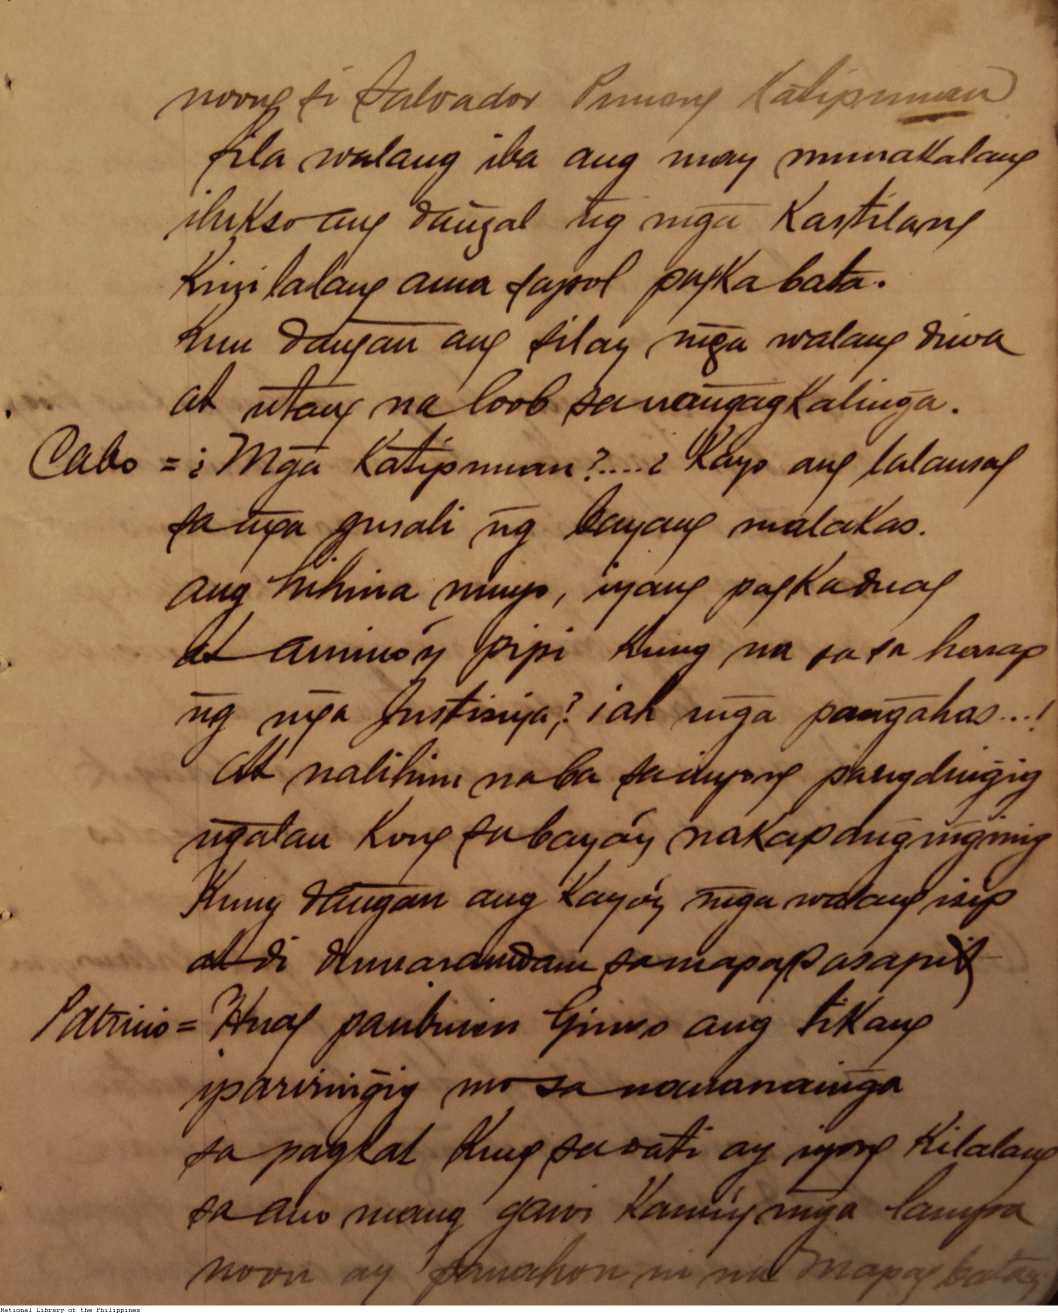 noong si Salvador Punong Katipunan
sila walang iba ang may munakalang
ilukso ang dangal ng̃ mg̃a Kastilang
Kinilalang ama sapol pagkabata.
Kun dang̃an ang silay mg̃a walang diwa
at utang na loob sa nang̃agkaling̃a.
Cabo = ¿Mg̃a Katipunan?....¿Kayo ang lalansag
sa mg̃a gusali ng̃ bayang malakas.
ang hihina ninyo, iyang pagkaduag
at animo'y pipi kung na sa sa harap
ng̃ mg̃a Justisiya? ¡ah mg̃a pang̃ahas...!
At nalihim na ba sa inyong pangding̃ig
ng̃alan kong sa baya'y nakapang̃ing̃inig
Kung dang̃an ang kayo'y mg̃a walang isip
at di dumaramdam sa mapapasapit
Patricio = Huag paubusin Ginoo ang tikang
iparining̃ig mo sa nananaing̃a
sa pagkat kung sa dati ay inyong kilalang
sa ano mang gawi kami'y mg̃a lampa
noon ay panahon